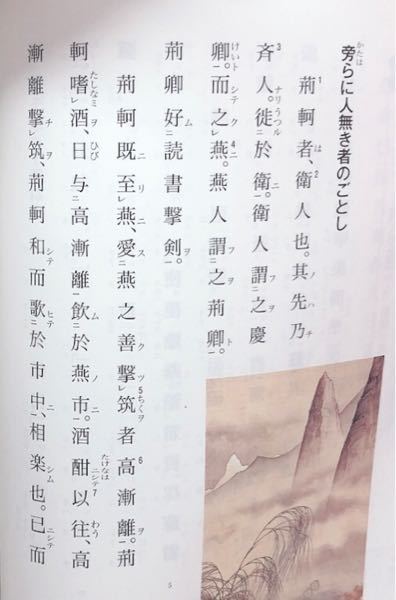 旁らに人無き者のごとし
荊軻者、衛人也。其先乃
斉人。徙於衛。衛人謂之慶
卿。而之燕。燕人謂之荊卿。
荊卿好読書撃剣。
荊軻既至燕、愛燕之善撃筑者高漸離。荊
軻嗜酒、日与高漸離飲於燕市。酒酣以往、高
漸離撃筑、荊軻和而歌於市中、相楽也。已而
5